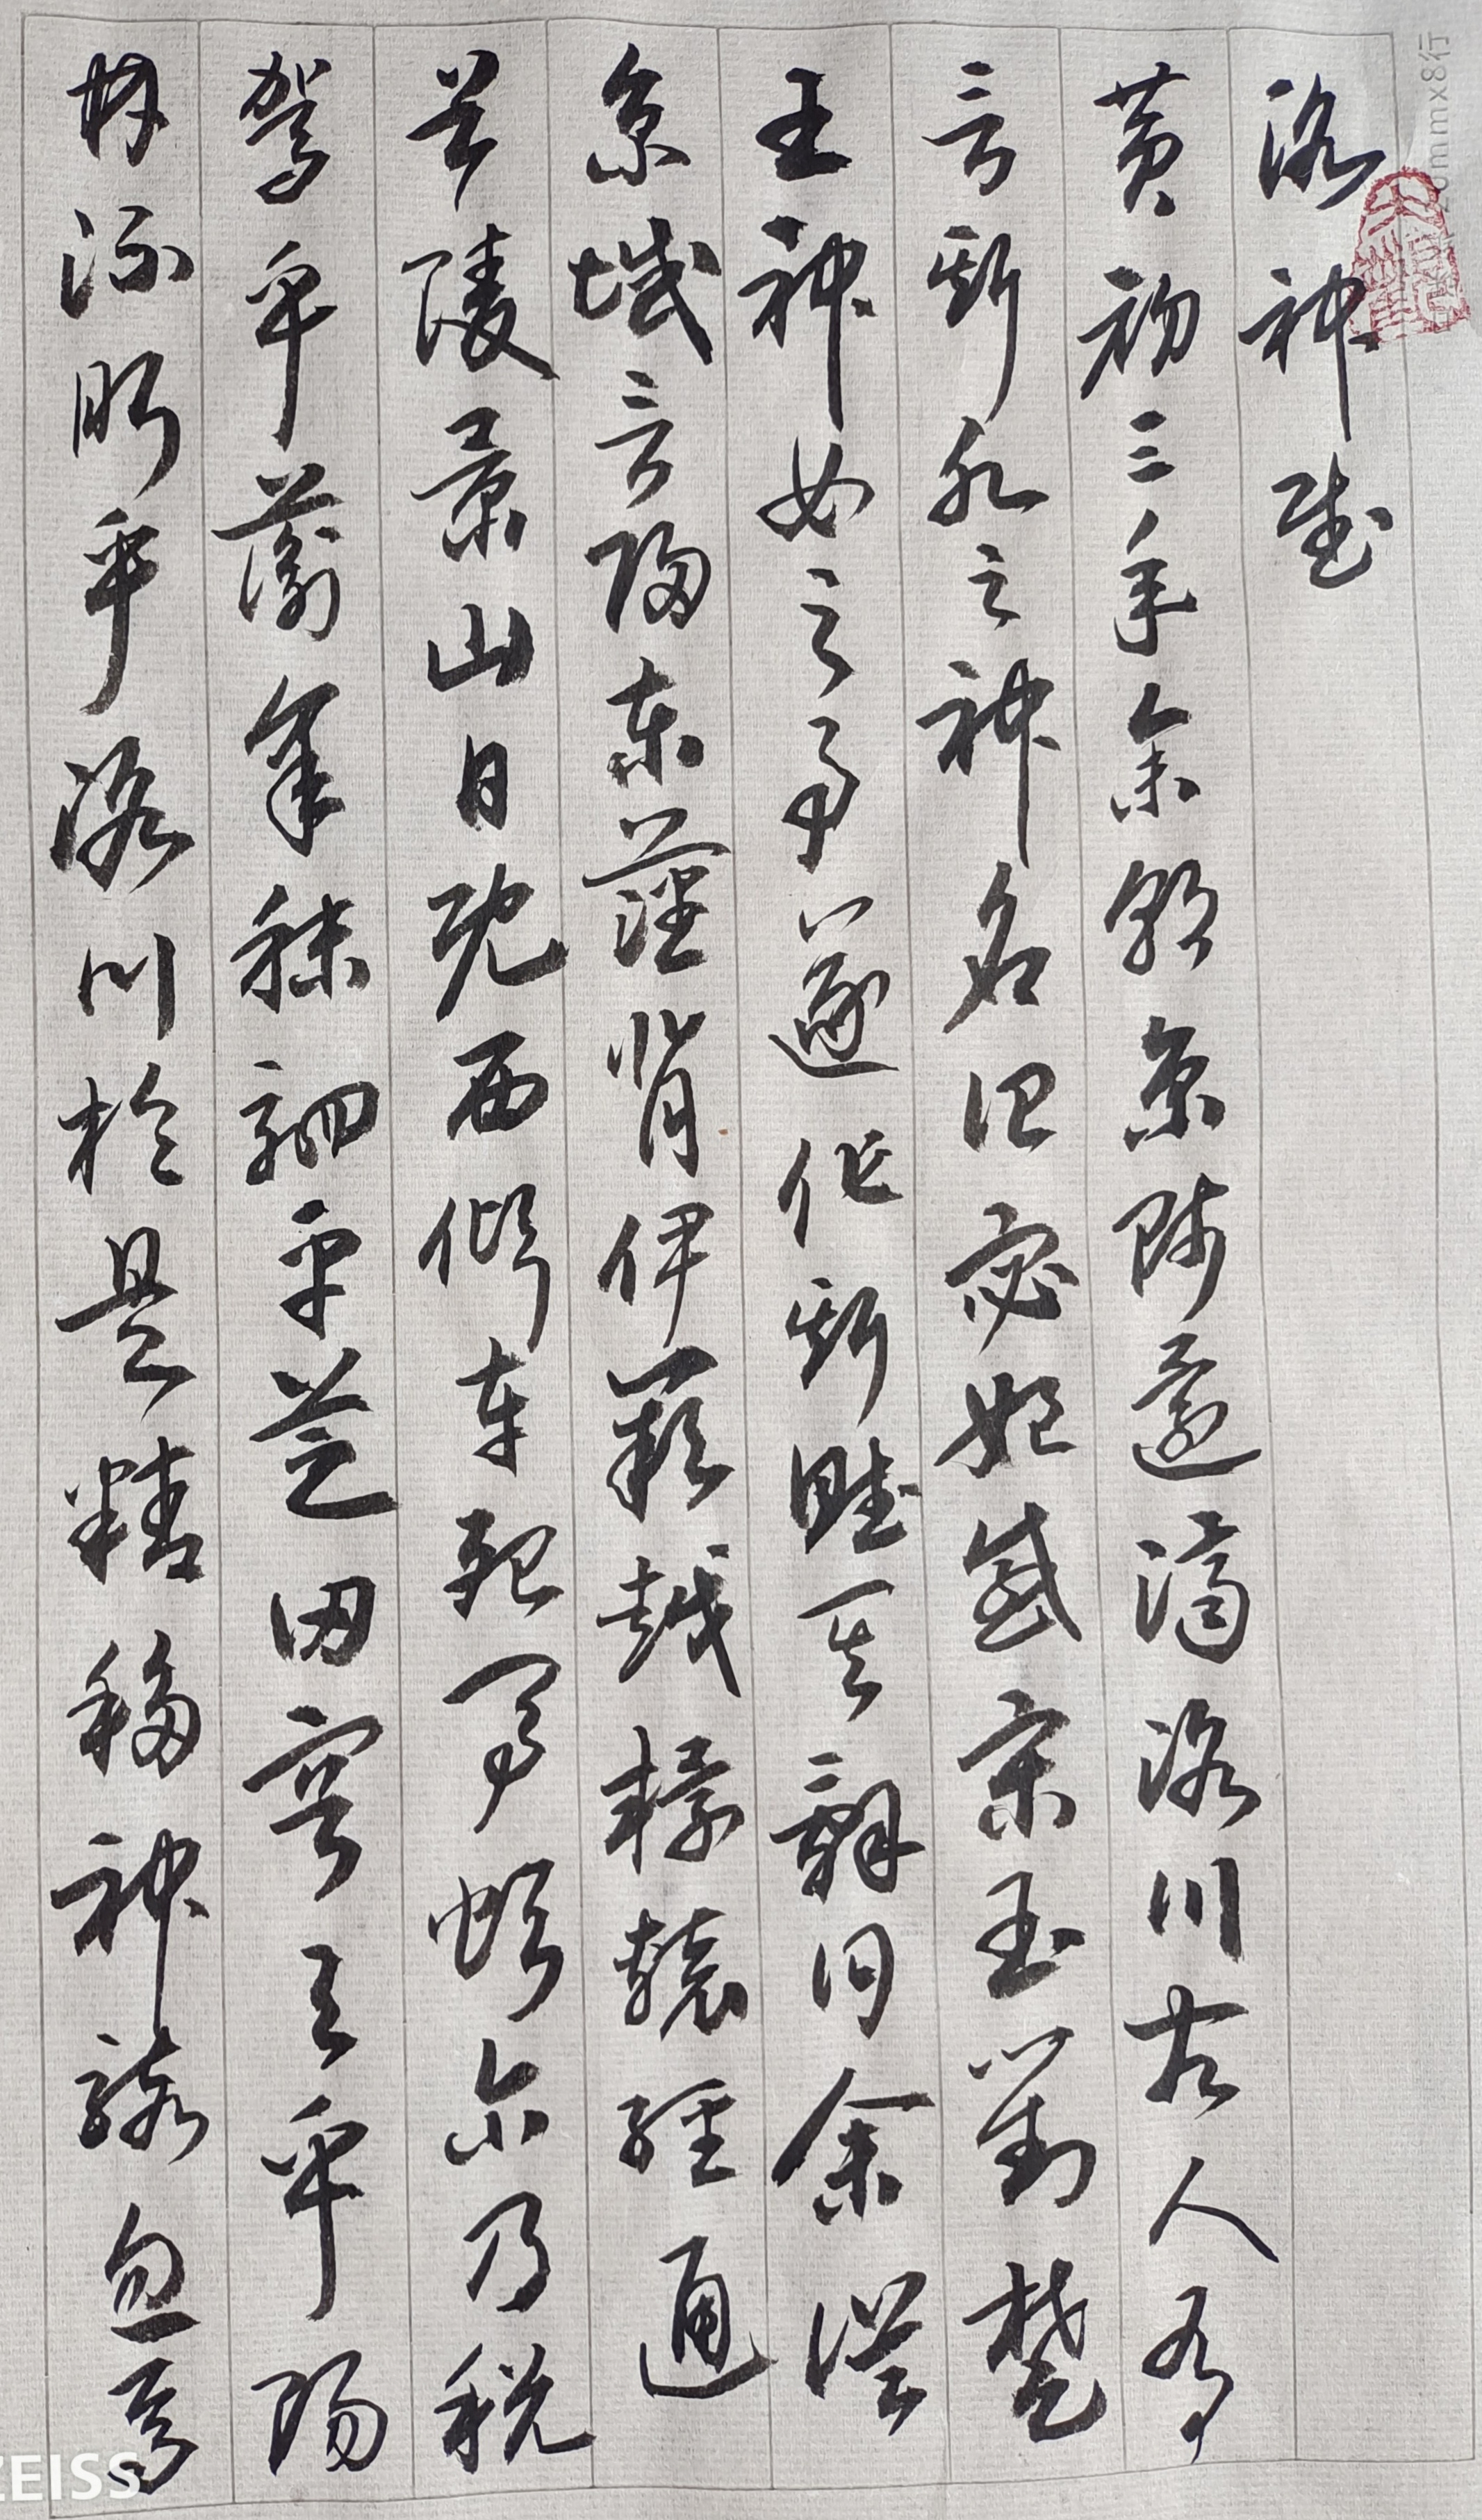 洛神賦
黄初三年余朝京師還濟洛川古人有
言斯水之神名曰宓妃感宋玉對楚
王神女之事遂作斯賦其辭曰余從
京域言歸東藩背伊闕越轘轅經通
谷陵景山日既西傾車殆馬煩尔乃税
駕乎蘅皋秣駟乎芝田容與乎陽
林流眄乎洛川於是精移神駭忽焉
20mmx8行
ZEISS